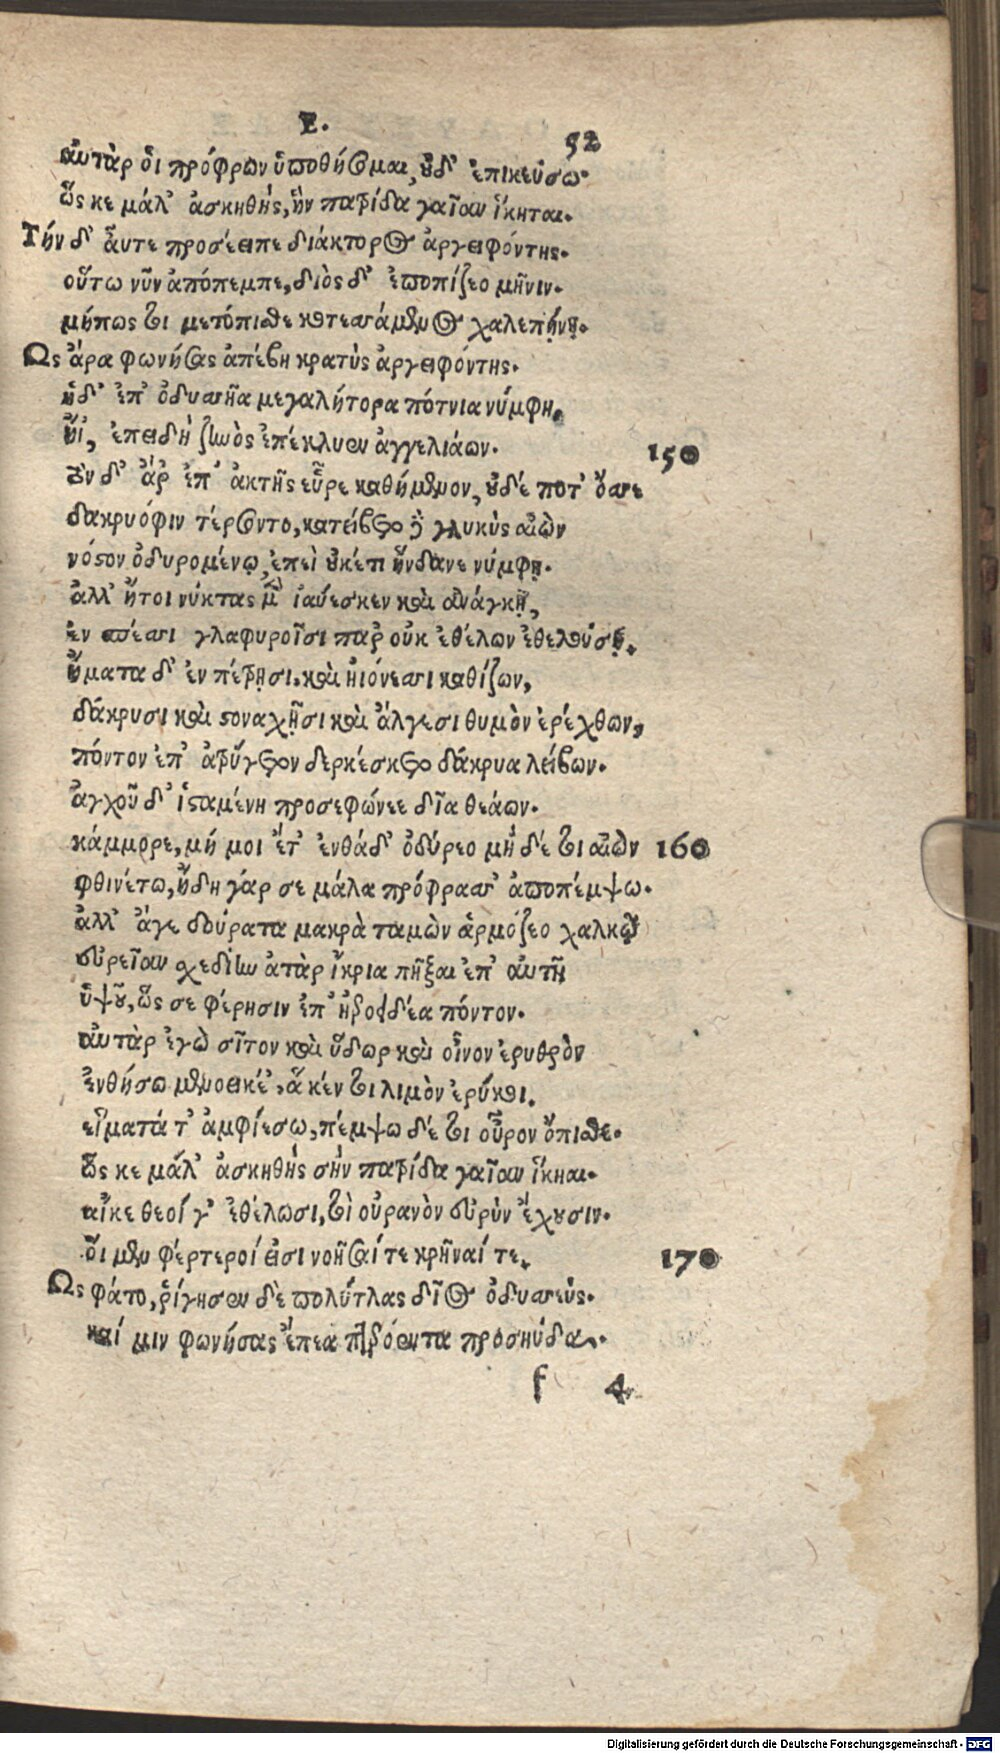 Ε.
52
αὐτὰρ ὁἱ πρόφρων ὑποθήσομαι, οὐδ' ἐπικεύσω·
ὥς κε μάλ' ἀσκηθὴς, ἣν πατρίδα γαῖαν ἵκηται.
Τὴν δ' αὖτε προσέειπε διάκτορος ἀργειφόντης.
οὕτω νῦν ἀπόπεμπε, διὸς δ' ἐποπίζεο μῆνιν.
μήπως τοι μετόπισθε κοτεσσάμενος χαλεπήνῃ.
Ως ἄρα φωνήσας ἀπέβη κρατὺς ἀργειφόντης.
ἡ δ' ἐπ' ὀδυσσῆα μεγαλήτορα πότνια νύμφη,
ἤϊ, ἐπειδὴ ζηνὸς ἐπέκλυεν ἀγγελιάων. 150
τὸν δ' ἄρ' ἐπ' ἀκτῆς εὗρε καθήμενον, οὐδέ ποτ' ὄσσε
δακρυόφιν τέρσοντο, κατείβετο δὲ γλυκὺς αἰὼν
νόστον ὀδυρομένῳ, ἐπεὶ οὐκέτι ἥνδανε νύμφη.
ἀλλ' ἤτοι νύκτας μὲν ἰαύεσκεν καὶ ἀνάγκῃ,
ἐν σπέσσι γλαφυροῖσι παρ' οὐκ ἐθέλων ἐθελούσῃ.
ἤματα δ' ἐν πέτρῃσι. καὶ ἠιόνεσσι καθίζων,
δάκρυσι καὶ στοναχῇσι καὶ ἄλγεσι θυμὸν ἐρέχθων,
πόντον ἐπ' ἀτρύγετον δερκέσκετο δάκρυα λείβων.
ἀγχοῦ δ' ἱσταμένη προσεφώνεε δῖα θεάων.
κάμμορε, μή μοι ἔτ' ἐνθάδ' ὀδύρεο μὴ δέ τοι αἰὼν 160
φθινέτω, ἤδη γάρ σε μάλα πρόφρασσ' ἀποπέμψω.
ἀλλ' ἄγε δούρατα μακρὰ ταμὼν ἁρμόζεο χαλκῷ
εὐρεῖαν σχεδίην ἀτὰρ ἴκρια πῆξαι ἐπ' αὐτῇ
ὑψοῦ, ὥς σε φέρησιν ἐπ' ἠεροειδέα πόντον.
αὐτὰρ ἐγὼ σῖτον καὶ ὕδωρ καὶ οἶνον ἐρυθρὸν
ἐνθήσω μενοεικέ', ἅ κέν τοι λιμὸν ἐρύκοι.
εἵματά τ' ἀμφιέσω, πέμψω δέ τοι οὖρον ὄπισθε.
ὥς κε μάλ' ἀσκηθὴς σὴν πατρίδα γαῖαν ἵκηαι.
αἴκε θεοί γ' ἐθέλωσι, τοὶ οὐρανὸν εὐρὺν ἔχουσιν.
ὅι μευ φέρτεροί εἰσι νοῆσαί τε κρῆναί τε. 170
Ως φάτο, ῥίγησεν δὲ πολύτλας δῖος ὀδυσσεύς.
καί μιν φωνήσας ἔπεα πτερόεντα προσηύδα.
f 4
Digitalisierung gefördert durch die Deutsche Forschungsgemeinschaft - DFG